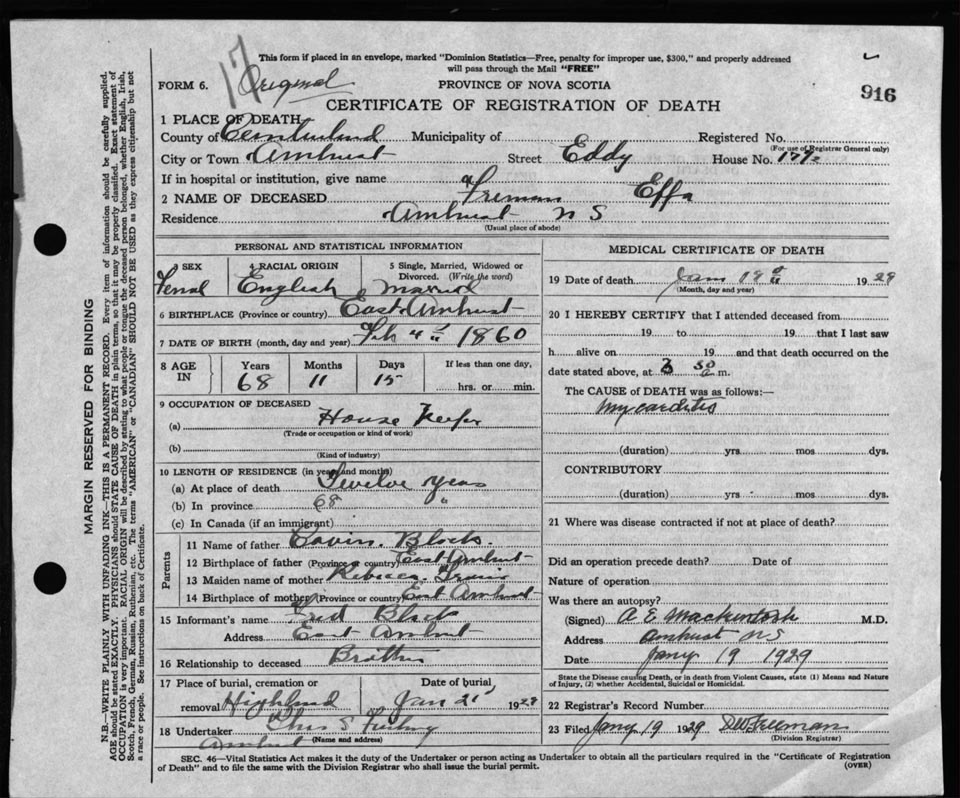 17
This form if placed in an envelope, marked "Dominion Statistics—Free, penalty for improper use, $300," and properly addressed
will pass through the Mail "FREE"
FORM 6. Original PROVINCE OF NOVA SCOTIA 916
CERTIFICATE OF REGISTRATION OF DEATH
1 PLACE OF DEATH
County of Cumberland Municipality of Registered No.
(For use of Registrar General only)
City or Town Amherst Street Eddy House No.
If in hospital or institution, give name
2 NAME OF DECEASED Freeman Effa
Residence Amherst N S
(Usual place of abode)
PERSONAL AND STATISTICAL INFORMATION
SEX 4 RACIAL ORIGIN 5 Single, Married, Widowed or Divorced. (Write the word)
Femal English Married
6 BIRTHPLACE (Province or country) East Amherst
7 DATE OF BIRTH (month, day and year) Feb 4 1860
8 AGE IN Years Months Days If less than one day,
68 11 15 hrs. or min.
9 OCCUPATION OF DECEASED
(a) House Keeper
(Trade or occupation or kind of work)
(b)
(Kind of industry)
10 LENGTH OF RESIDENCE (in years and months)
(a) At place of death Twelve years
(b) In province 68 "
(c) In Canada (if an immigrant)
Parents
11 Name of father Black
12 Birthplace of father (Province or country) East Amherst
13 Maiden name of mother Rebecca
14 Birthplace of mother (Province or country) East Amherst
15 Informant's name Fred Black
Address East Amherst
16 Relationship to deceased Brother
17 Place of burial, cremation or removal Highland Date of burial Jan 21 1929
18 Undertaker Chas S
Amherst (Name and address)
MEDICAL CERTIFICATE OF DEATH
19 Date of death Jan 19 1929
(Month, day and year)
20 I HEREBY CERTIFY that I attended deceased from
19 to 19 that I last saw
h alive on 19 and that death occurred on the
date stated above, at 3 30 a.m.
The CAUSE of DEATH was as follows:—
Mycarditis
(duration) yrs. mos dys.
CONTRIBUTORY
(duration) yrs mos dys.
21 Where was disease contracted if not at place of death?
Did an operation precede death? Date of
Nature of operation
Was there an autopsy?
(Signed) A E Mackintosh M.D.
Address Amherst NS
Date Jany 19 1929
State the Disease causing Death, or in death from Violent Causes, state (1) Means and Nature
of Injury, (2) whether Accidental, Suicidal or Homicidal.
22 Registrar's Record Number
23 Filed Jany 19 1929 Freeman
(Division Registrar)
SEC. 46—Vital Statistics Act makes it the duty of the Undertaker or person acting as Undertaker to obtain all the particulars required in the "Certificate of Registration
of Death" and to file the same with the Division Registrar who shall issue the burial permit. (OVER)
MARGIN RESERVED FOR BINDING
N.B.—WRITE PLAINLY WITH UNFADING INK—THIS IS A PERMANENT RECORD. Every item of information should be carefully supplied.
AGE should be stated EXACTLY. PHYSICIANS should STATE CAUSE OF DEATH in plain terms, so that it may be properly classified. Exact statement of
OCCUPATION is very important. RACIAL ORIGIN will be described by stating to what people or tongue the deceased person belonged, whether English, Irish,
Scotch, French, German, Russian, Ruthenian, etc. The terms "AMERICAN" or "CANADIAN" SHOULD NOT BE USED as they express citizenship but not
a race or people. See instructions on back of Certificate.